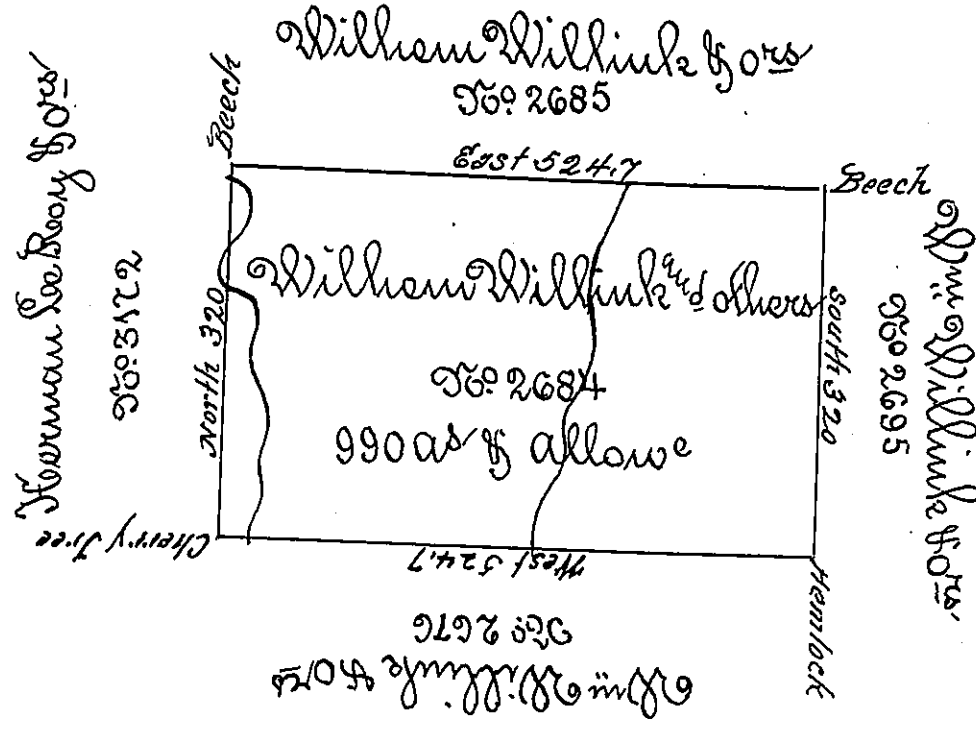 William Willink & ors
No. 2685
Beech
East 524.7
Beech
Herman Le Roy & ors
No. 3172
North 320
William Willink and others
No. 2684
990 as & allowe
South 320
Wm Willink & ors
No. 2695
Cherry Tree
West 524.7
Hemlock
No. 2676
Wm Willink & ors